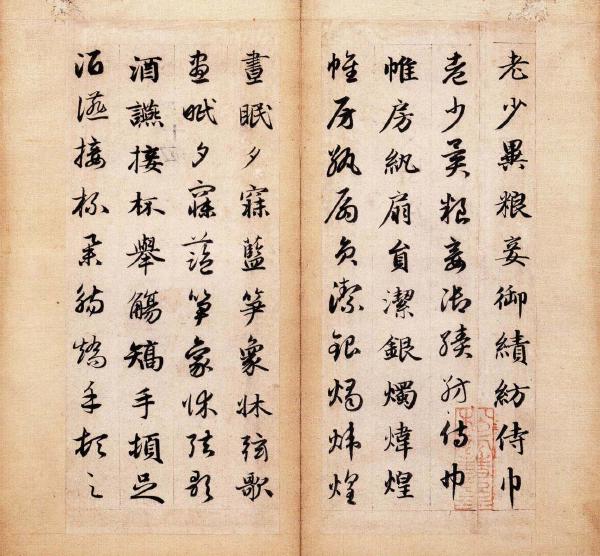 老少異粮妾御績紡侍巾
老少異粮妾御績紡侍巾
帷房紈扇員潔銀燭煒煌
帷房紈扇員潔銀燭煒煌
晝眠夕寐藍笋象牀絃歌
晝眠夕寐藍笋象牀絃歌
酒讌接杯舉觴矯手頓足
酒讌接杯舉觴矯手頓足